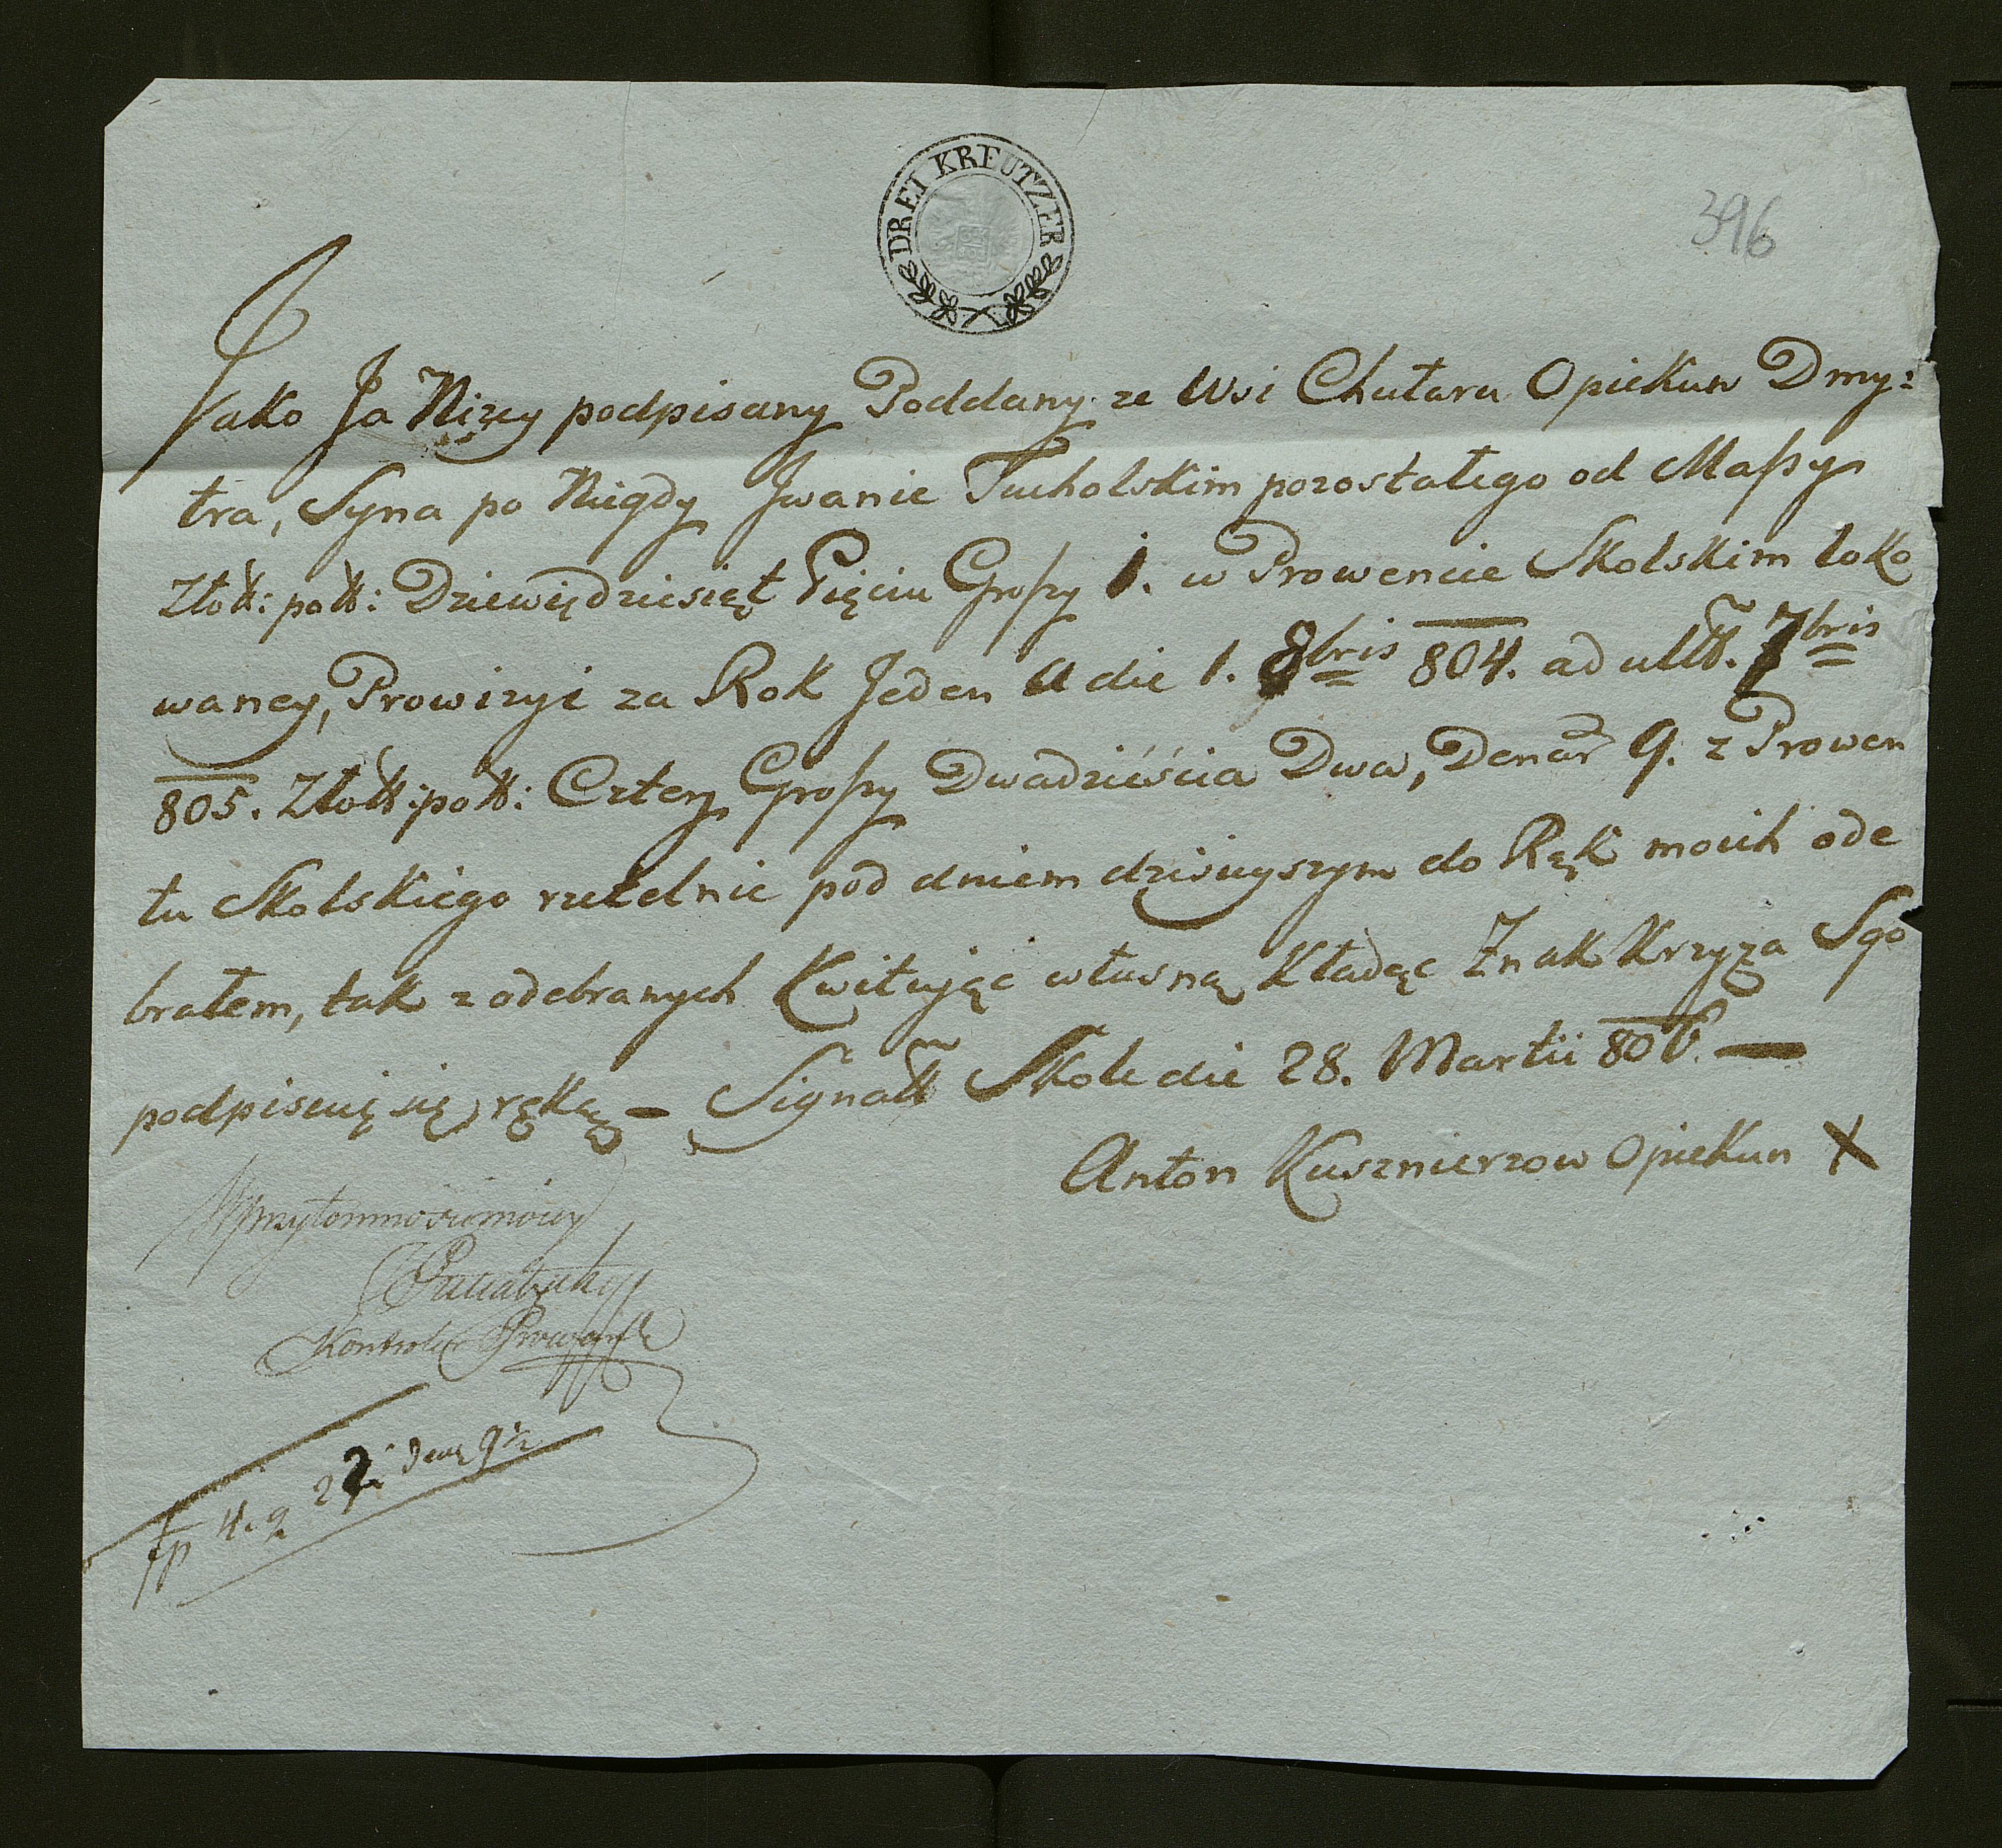 DREI KREUTZER
396
Jako Ja Niżey podpisany Poddany ze Wsi Chutara Opiekun Dmy:
tra, Syna po Niegdy Jwanie Tucholskim pozostałego od Massy
Złołł: poll: Dziewiędziesiąt Pięciu Groszy 1. w Prowencie Skolskim loko
waney, Prowizyi za Rok Jeden a die 1. 8bris 804. ad ult. 7bris
805. Złołł: poll: Cztery Groszy Dwadzieścia Dwa, Denar 9. z Prowen
tu Skolskiego rzetelnie pod dniem dzisieyszym do Rąk moich ode
brałem, tak z odebranych Kwituiąc własną Kładąc Znak Krzyża Sgo
podpisuię się ręką – Signatt Skole die 28. Martii 806. —
Anton Kusznierzow Opiekun X
W przytomności moiey
Kontrolor
fp 4. g 22 den 9 1/2